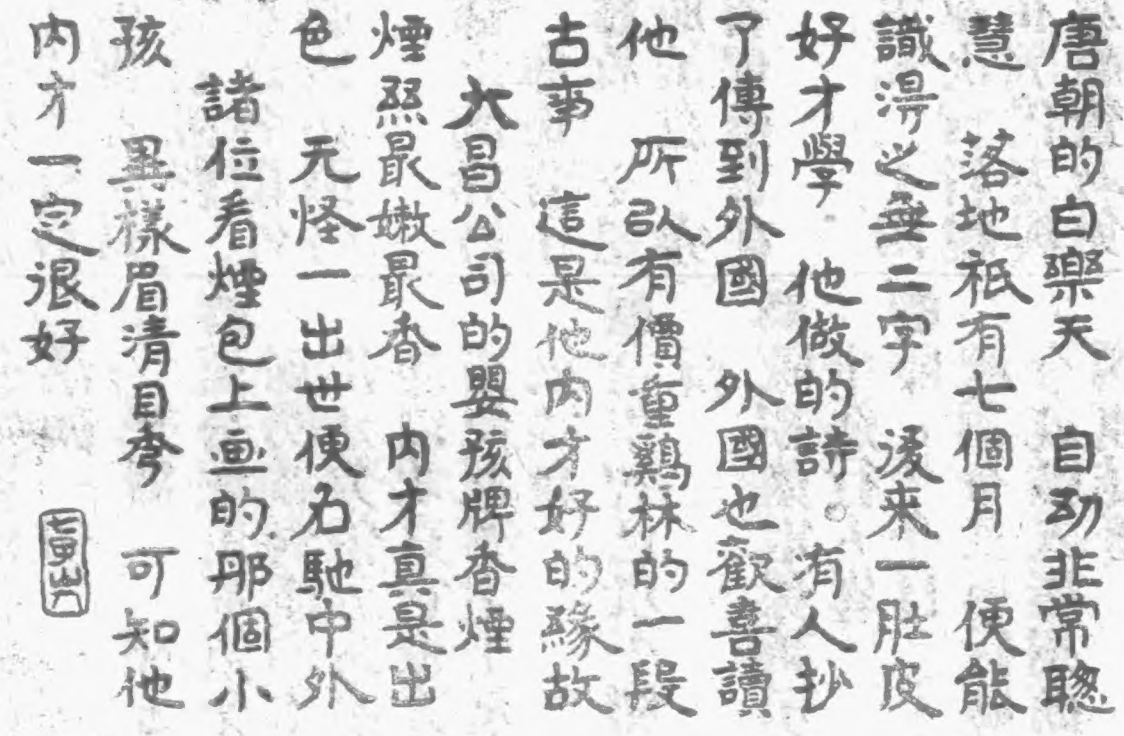 唐朝的白樂天　自幼非常聰
慧　落地袛有七個月　便能
識淂之無二字　後来一肚皮
好才學　他做的詩。有人抄
了傳到外國　外國也歡喜讀
他　所以有價重鷄林的一段
古事　這是他内才好的緣故
大昌公司的嬰孩牌香煙
煙絲最嫩最香　内才真是出
色　无怪一出世便名馳中外
諸位看煙包上画的那個小
孩　異樣眉清目秀　可知他
内才一定很好